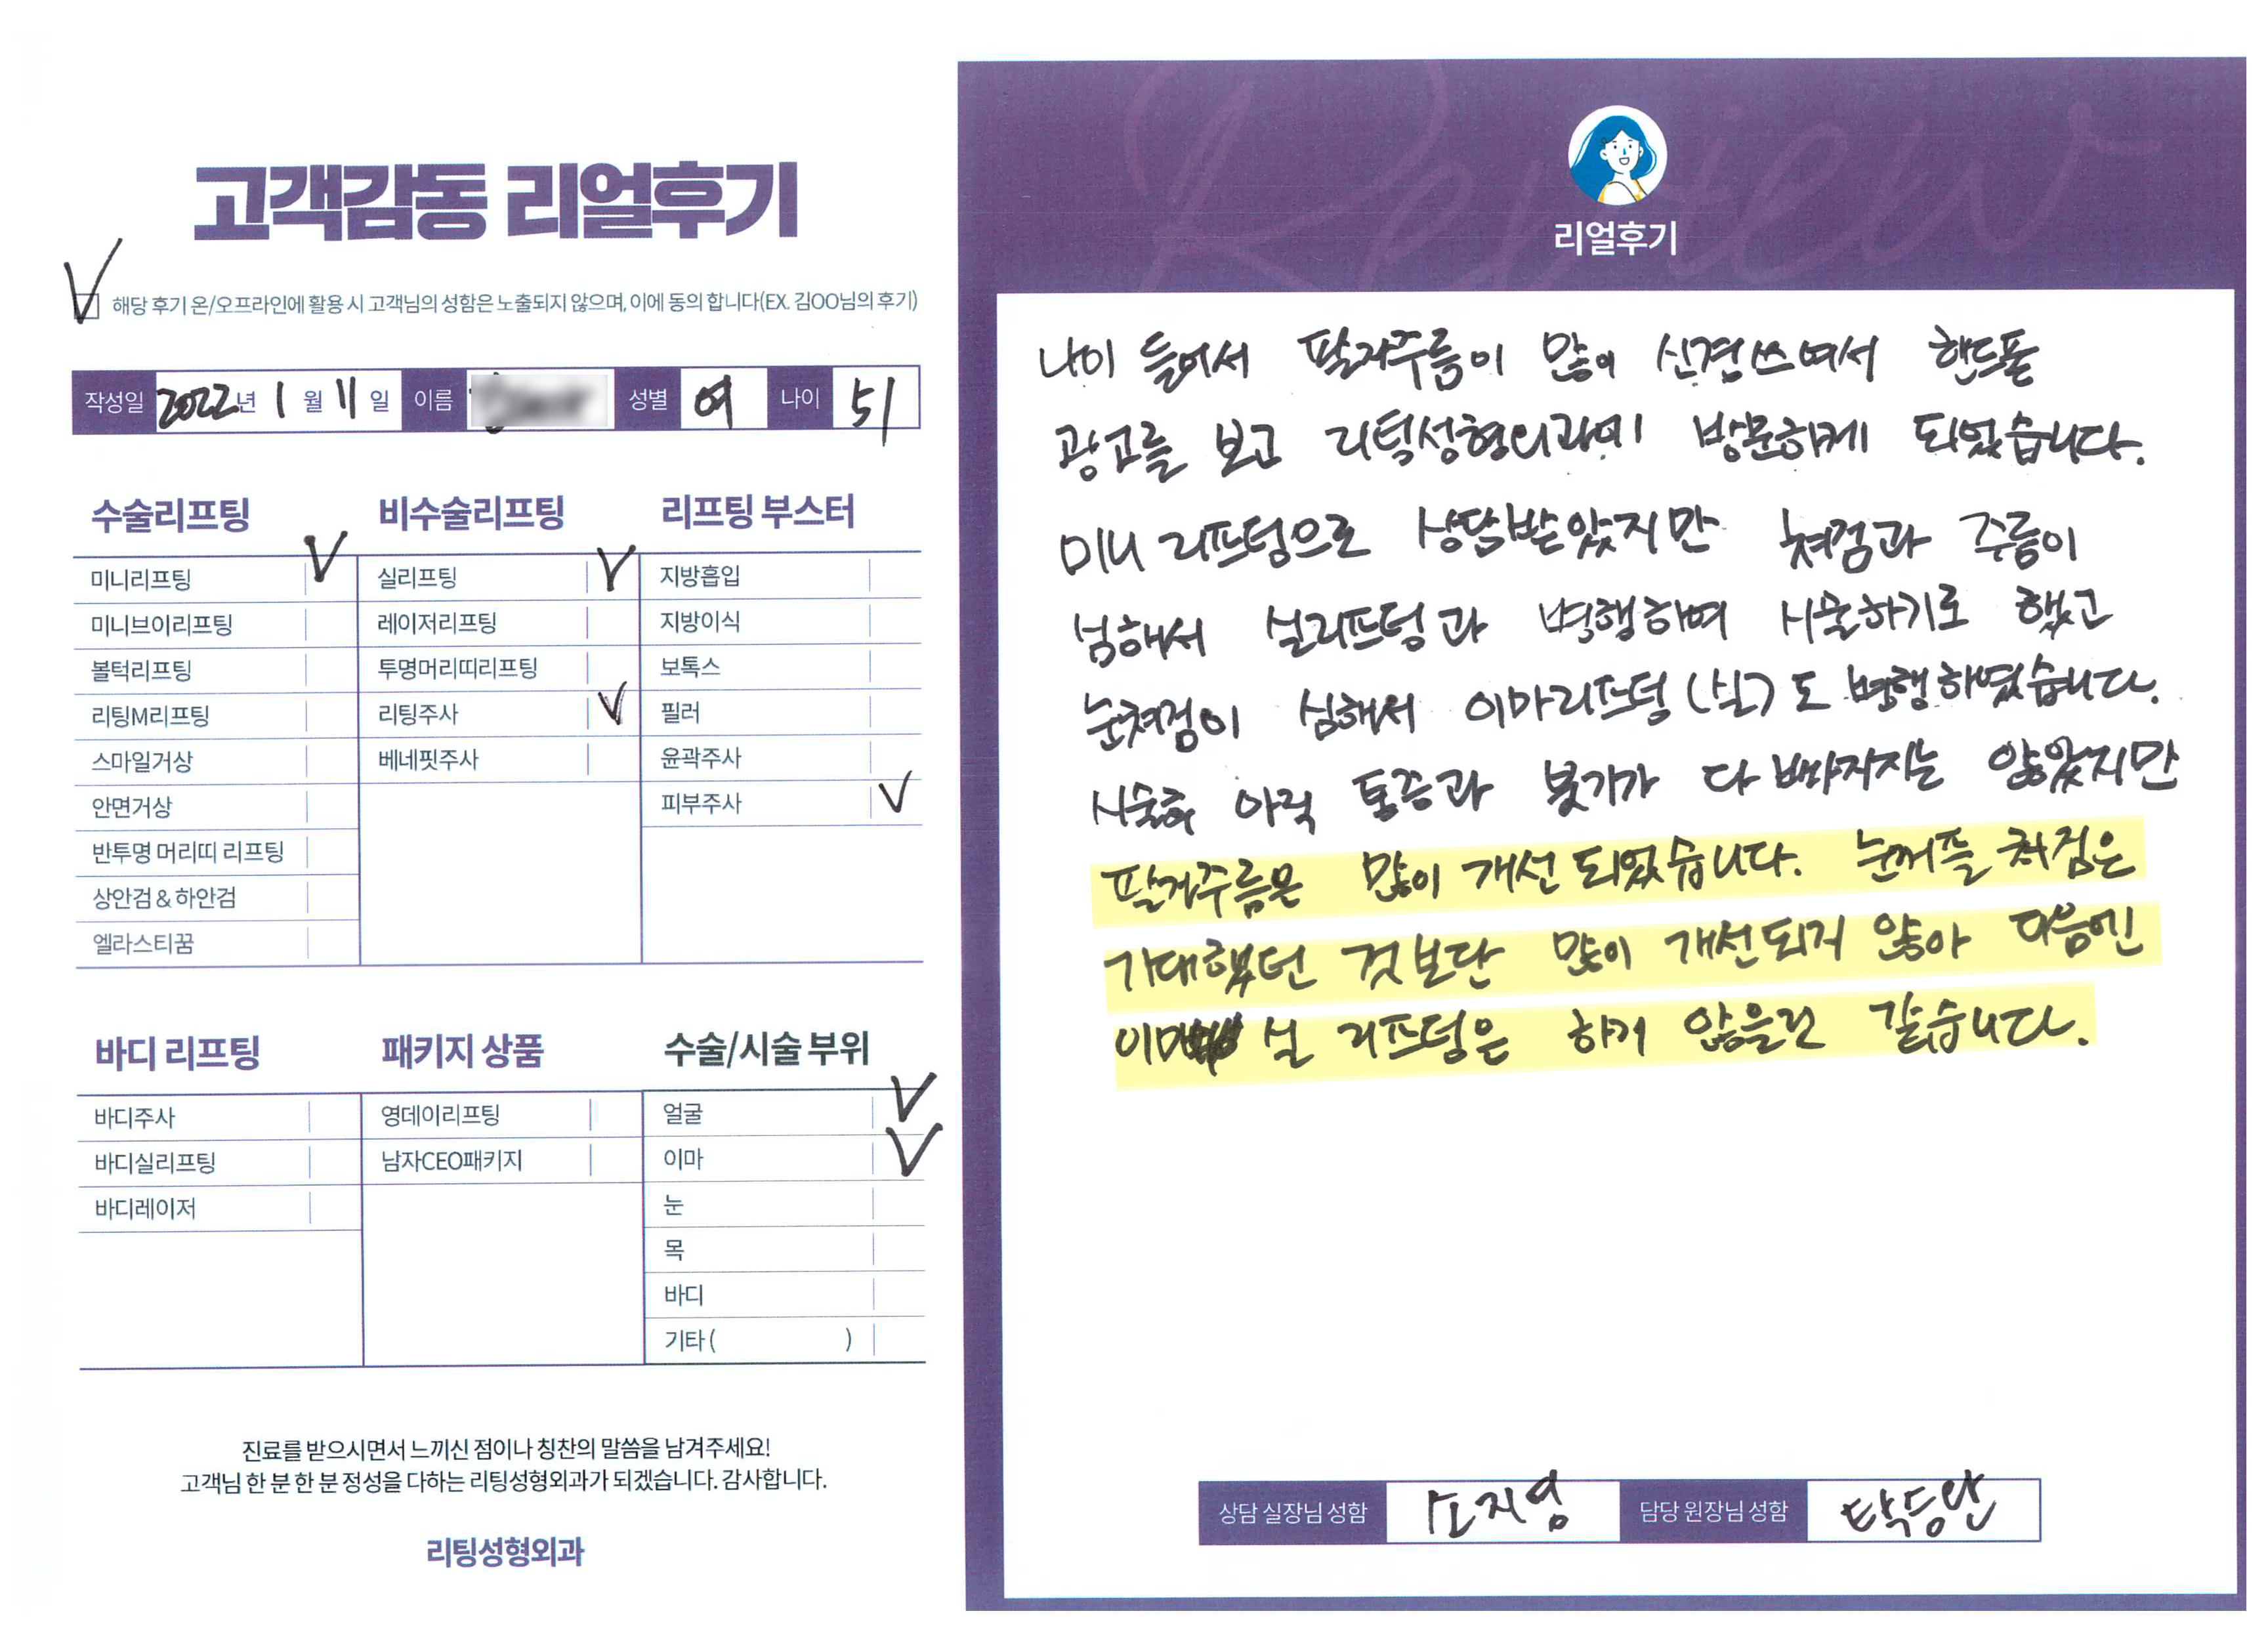 고객감동 리얼후기
해당 후기 온/오프라인에 활용 시 고객님의 성함은 노출되지 않으며, 이에 동의 합니다(EX. 김OO님의 후기)
작성일 2022년 1월 11일 이름 성별 여 나이 51
수술리프팅
미니리프팅 V
미니브이리프팅
볼턱리프팅
리팅M리프팅
스마일거상
안면거상
반투명 머리띠 리프팅
상안검 & 하안검
엘라스티꿈
비수술리프팅
실리프팅 V
레이저리프팅
투명머리띠리프팅
리팅주사 V
베네핏주사
리프팅 부스터
지방흡입
지방이식
보톡스
필러
윤곽주사
피부주사 V
바디 리프팅
바디주사
바디실리프팅
바디레이저
패키지 상품
영데이리프팅
남자CEO패키지
수술/시술 부위
얼굴 V
이마 V
눈
목
바디
기타 ( )
진료를 받으시면서 느끼신 점이나 칭찬의 말씀을 남겨주세요!
고객님 한 분 한 분 정성을 다하는 리팅성형외과가 되겠습니다. 감사합니다.
리팅성형외과
Review
리얼후기
나이 들어서 팔자주름이 많이 신경쓰여서 핸드폰
광고를 보고 리팅성형외과에 방문하게 되었습니다.
미니 리프팅으로 상담받았지만 쳐짐과 주름이
심해서 실리프팅과 병행하여 시술하기로 했고
눈쳐짐이 심해서 이마리프팅(실)도 병행하였습니다.
시술후 아직 통증과 붓기가 다 빠지지는 않았지만
팔자주름은 많이 개선 되었습니다. 눈꺼플 쳐짐은
기대했던 것보단 많이 개선되지 않아 다음엔
이마 실 리프팅은 하지 않을것 같습니다.
상담 실장님 성함 소지영 담당 원장님 성함